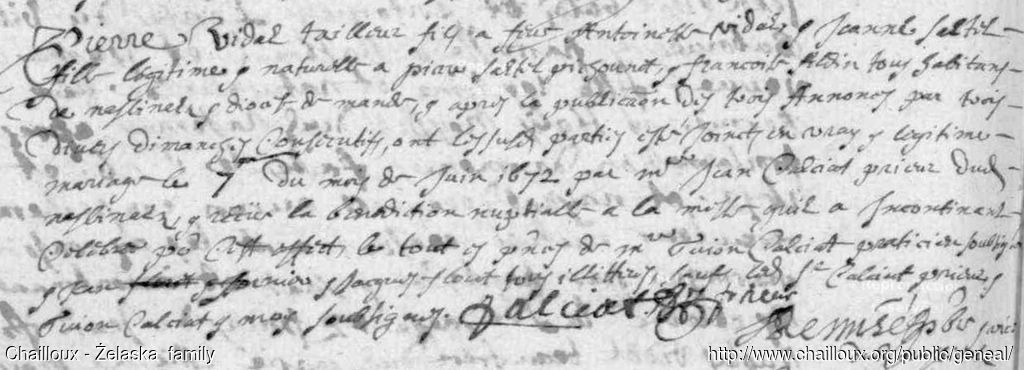 Pierre Vidal tailleur filz a feu Antoine Vidal, & Jeanne Saltel
fille legitime & naturelle a pierre Saltel & francoise habitans
de nasbinals, diocese de mande, & apres la publication des trois Annonces par trois
divers dimanches Consecutifs, ont lessusd parties esté Joinctes en vray & legitime
mariage le 7e du mois de Juin 1672 par mre Jean Calciat prieur dud
nasbinals, & receu la benediction nuptialle a la messe quil a Incontinant
Celebré po Cest effect, le tout es pnces de mre Guion Calciat praticien soubsigné
& Jean & Jacques tous illitterés, sauf led sr Calciat prieur, &
Guion Calciat & moy soubsignes. Calciat prieur
Chailloux - Żelaska family
http://www.chailloux.org/public/geneal/